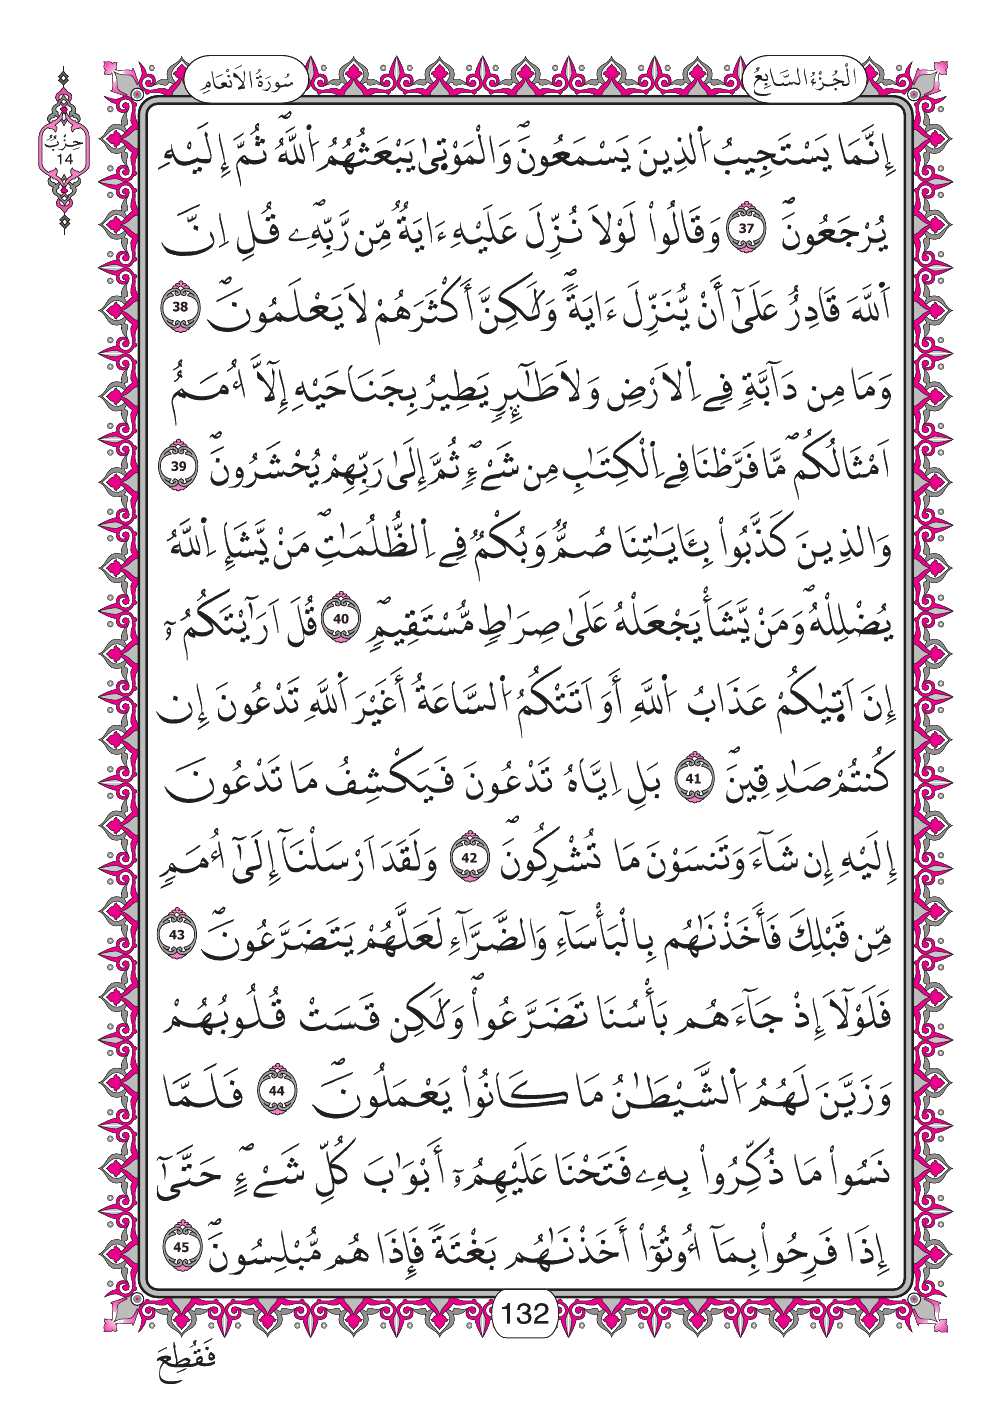 الْجُزْءُ السَّابِعُ
سُورَةُ الْاَنْعَامِ
حِزْبُ
14
إِنَّمَا يَسْتَجِيبُ اُ۬لذِينَ يَسْمَعُونَۖ وَالْمَوْت۪ىٰ يَبْعَثُهُمُ اُ۬للَّهُۖ ثُمَّ إِلَيْهِ
يُرْجَعُونَۖ 37 وَقَالُواْ لَوْلَا نُزِّلَ عَلَيْهِ ءَايَةٞ مِّن رَّبِّهِۦۖ قُلِ اِنَّ
اَ۬للَّهَ قَادِرٌ عَلَىٰٓ أَنْ يُّنَزِّلَ ءَايَةٗۖ وَلَٰكِنَّ أَكْثَرَهُمْ لَا يَعْلَمُونَۖ 38
وَمَا مِن دَآبَّةٖ فِے اِ۬لَارْضِ وَلَا طَٰٓئِرٖ يَطِيرُ بِجَنَاحَيْهِ إِلَّآ أُمَمٌ
اَمْثَالُكُمۖ مَّا فَرَّطْنَا فِے اِ۬لْكِتَٰبِ مِن شَےْءٖۖ ثُمَّ إِلَىٰ رَبِّهِمْ يُحْشَرُونَۖ 39
وَالذِينَ كَذَّبُواْ بِـَٔايَٰتِنَا صُمّٞ وَبُكْمٞ فِے اِ۬لظُّلُمَٰتِۖ مَنْ يَّشَإِ اِ۬للَّهُ
يُضْلِلْهُۖ وَمَنْ يَّشَأْ يَجْعَلْهُ عَلَىٰ صِرَٰطٖ مُّسْتَقِيمٖۖ 40 قُلَ اَرَٰٓيْتَكُمُۥٓ
إِنَ اَت۪يٰكُمْ عَذَابُ اُ۬للَّهِ أَوَ اَتَتْكُمُ اُ۬لسَّاعَةُ أَغَيْرَ اَ۬للَّهِ تَدْعُونَ إِن
كُنتُمْ صَٰدِقِينَۖ 41 بَلِ اِيَّاهُ تَدْعُونَ فَيَكْشِفُ مَا تَدْعُونَ
إِلَيْهِ إِن شَآءَ وَتَنسَوْنَ مَا تُشْرِكُونَۖ 42 وَلَقَدَ اَرْسَلْنَآ إِلَىٰٓ أُمَمٖ
مِّن قَبْلِكَ فَأَخَذْنَٰهُم بِالْبَأْسَآءِ وَالضَّرَّآءِ لَعَلَّهُمْ يَتَضَرَّعُونَۖ 43
فَلَوْلَآ إِذْ جَآءَهُم بَأْسُنَا تَضَرَّعُواْۖ وَلَٰكِن قَسَتْ قُلُوبُهُمْ
وَزَيَّنَ لَهُمُ اُ۬لشَّيْطَٰنُ مَا كَانُواْ يَعْمَلُونَۖ 44 فَلَمَّا
نَسُواْ مَا ذُكِّرُواْ بِهِۦ فَتَحْنَا عَلَيْهِمُۥٓ أَبْوَٰبَ كُلِّ شَےْءٍۖ حَتَّىٰٓ
إِذَا فَرِحُواْ بِمَآ أُوتُوٓاْ أَخَذْنَٰهُم بَغْتَةٗ فَإِذَا هُم مُّبْلِسُونَۖ 45
132
فَقُطِعَ